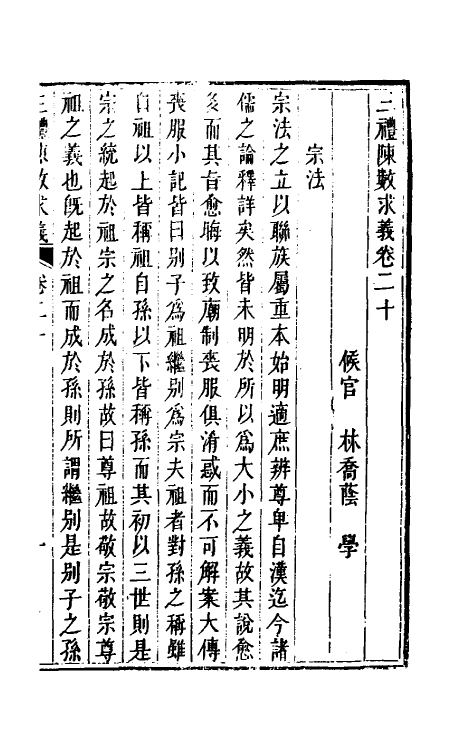 三禮陳數求義卷二十
候官　林喬蔭　學
宗法
宗法之立以聯族屬重本始明適庶辨尊卑自漢迄今諸
儒之論釋詳矣然皆未明於所以爲大小之義故其說愈
多而其旨愈晦以致廟制喪服俱淆惑而不可解案大傳
喪服小記皆曰別子爲祖繼別爲宗夫祖者對孫之稱雖
自祖以上皆稱祖自孫以下皆稱孫而其初以三世則是
宗之統起於祖宗之名成於孫故曰尊祖故敬宗敬宗尊
祖之義也旣起於祖而成於孫則所謂繼別是別子之孫
三禮陳數求義　卷二十　一